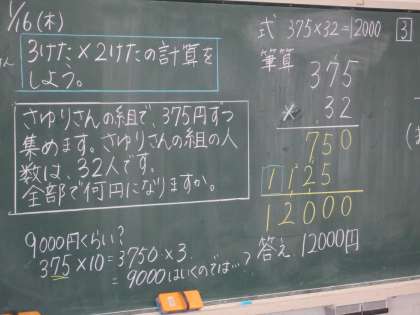 1/16(木)
3けた×2けたの計算を
しよう。
さゆりさんの組で、375円ずつ
集めます。さゆりさんの組の人
数は、32人です。
全部で何円になりますか。
9000円くらい?
375×10=3750×3
=9000はいくのでは…?
式 375×32=12000
3
筆算
375
× 32
750
1125
12000
答え 12000円